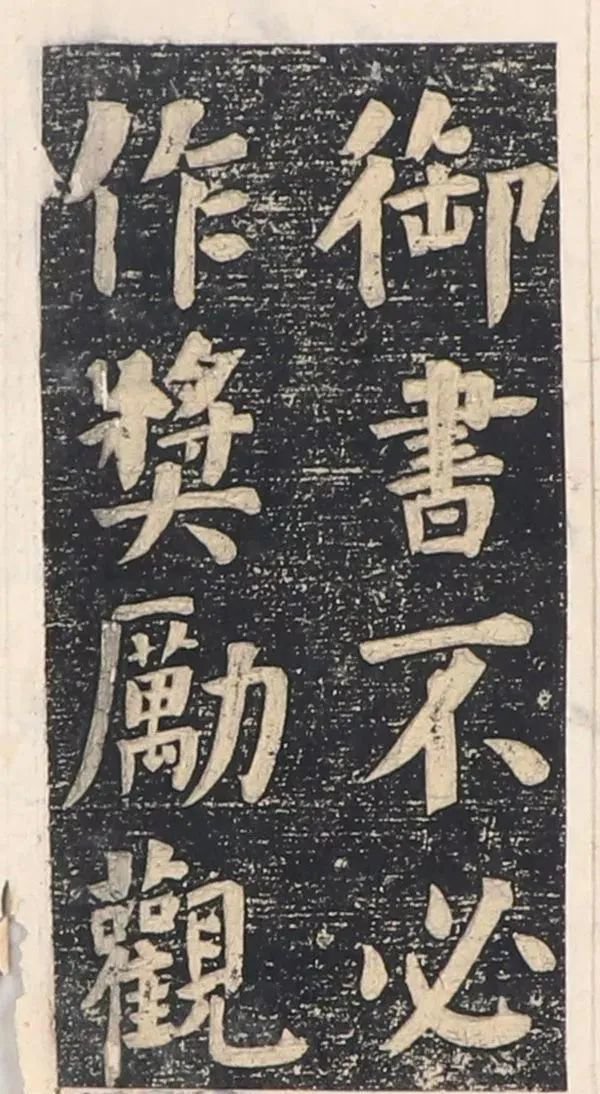 御書不必
作獎勵觀